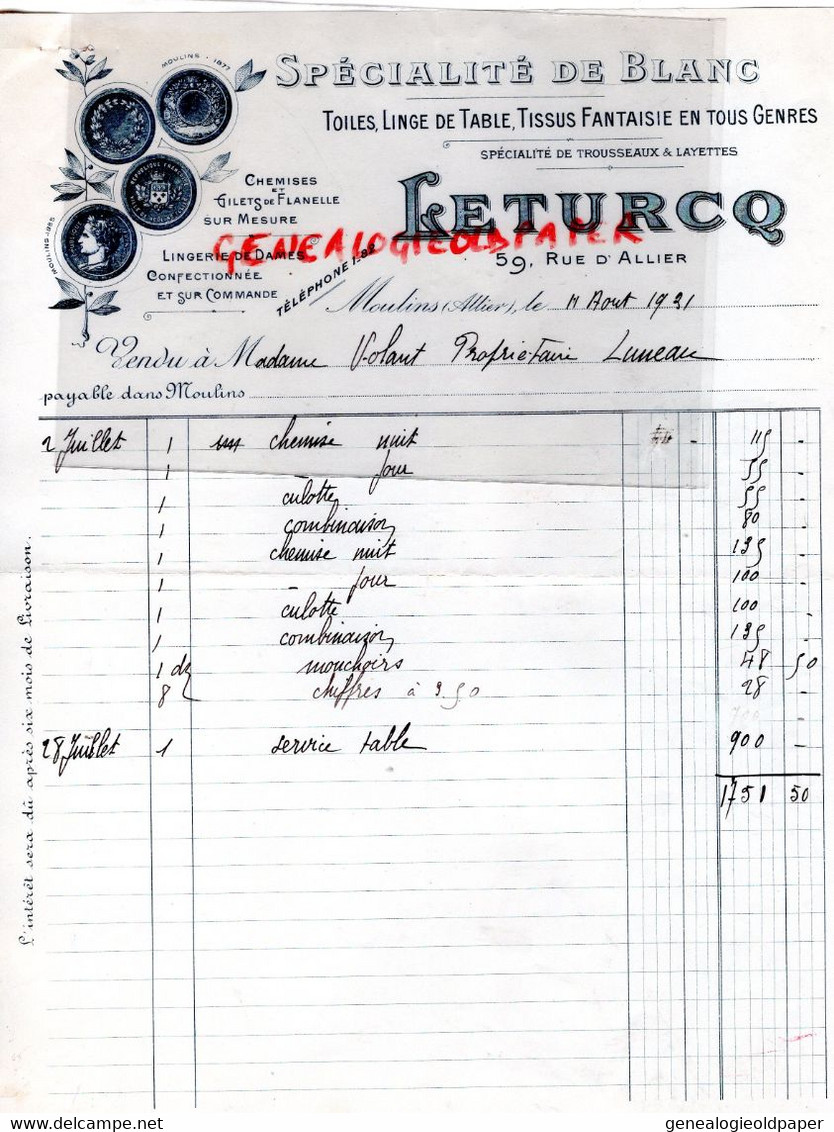 MOULINS - 1877
SPÉCIALITÉ DE BLANC
TOILES, LINGE DE TABLE, TISSUS FANTAISIE EN TOUS GENRES
SPÉCIALITÉ DE TROUSSEAUX & LAYETTES
CHEMISES
ET
GILETS DE FLANELLE
SUR MESURE
LETURCQ
GENEALOGIEOLDPAPER
59, RUE D'ALLIER
MOULINS-1885
LINGERIE DE DAMES
CONFECTIONNÉE
ET SUR COMMANDE
TÉLÉPHONE 1-82
Moulins (Allier), le 11 Aout 1931
Vendu à Madame Volant Proprietaire Luneau
payable dans Moulins
2 Juillet 1 chemise nuit 115 -
1 - jour 55
1 culotte 55 -
1 combinaison 80 -
1 chemise nuit 135 -
1 - jour 100 -
1 culotte 100 -
1 combinaison 135 -
1 dz mouchoirs 48 50
8 chiffres à 3 50 28 -
28 Juillet 1 service table 900 -
1751 50
L'intérêt sera dû après six mois de Livraison.
genealogieoldpaper